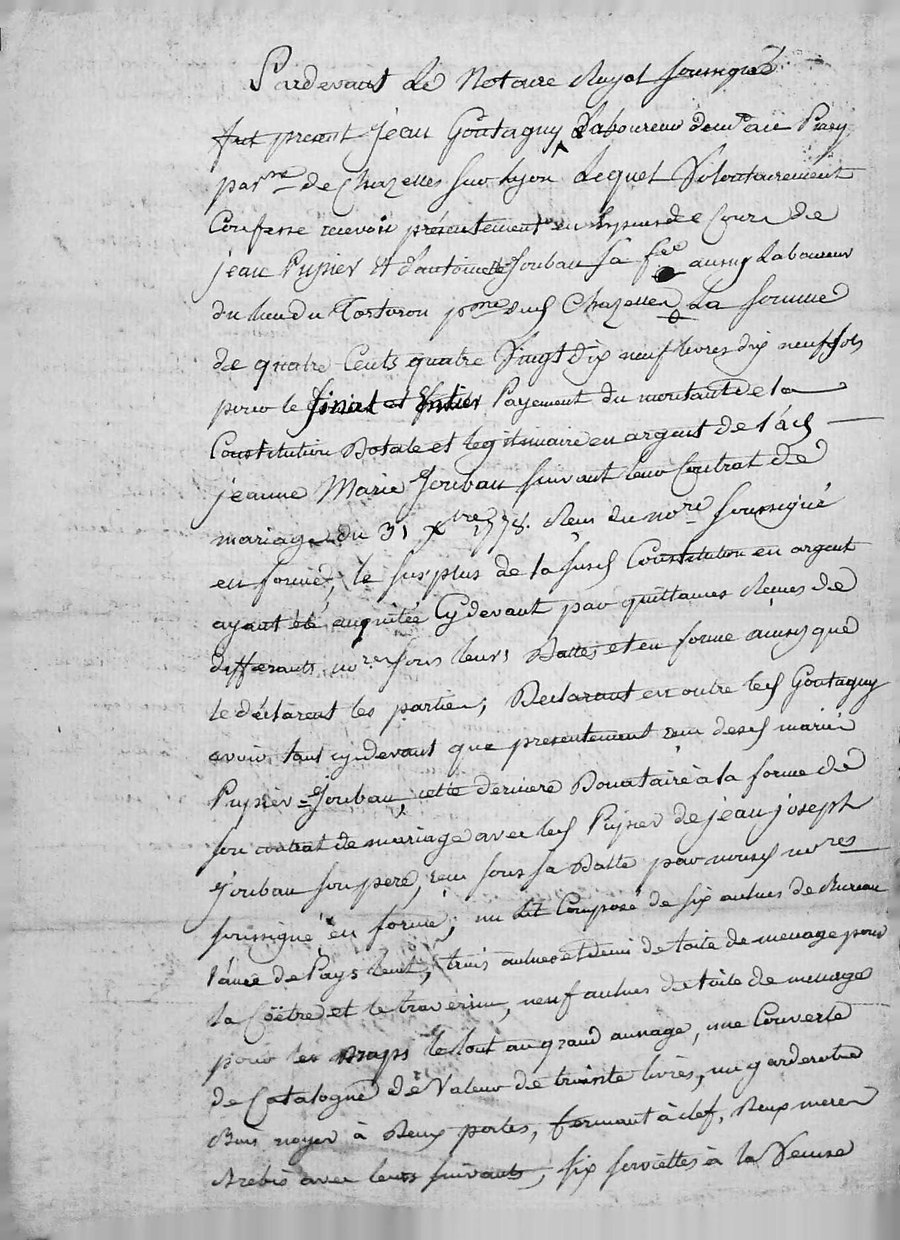 Pardevant Le Notaire Royal Soussigné
fut present Jean Goutagny Laboureur dem.t au
par.sse de Chazelles sur Lyon Lequel Volontairement
Confesse recevoir présentement en Cours de
jean Pupier et d'antoinette Joubau sa f.e aussy Laboureur
du Lieu du Tortoron p.sse dud Chazelles La Somme
de quatre Cents quatre Vingt dix neuf livres dix neuf sols
pour le finiet et Entier Payement du montant de la
Constitution Dotale et legitimaire en argent de lad
jeanne Marie Joubau suivant leur Contrat de
mariage du 31 Xbre 1778. Reçu du no.re Soussigné
en forme, le surplus de la susd Constitution en argent
ayant été acquitée Cy devant par quittances Reçues de
differants no.res sous leurs Dattes et en forme ainsy que
le déclarent les parties; Declarant en outre led Goutagny
avoir tant cy devant que presentement reçu desd mariés
Pupier-Joubau, cette derniere Donataire à la forme de
son contrat de mariage avec led Pupier de jean joseph
Joubau son pere, reçu sous sa Datte par nousd no.res
soussigné en forme; un Lit Composé de six aulnes de Bureau
Lancé de Pays teint, trois aulnes et demi de toile de menage pour
la Coëtre et le traversin, neuf aulnes de toile de menage
pour les Draps le tout au grand aunage, une Couverte
de Catalogne de Valeur de trente livres, un garderobe
Bois noyer à Deux portes, fermant à clef, Deux meres
Brebis avec leurs suivants, six serviettes à la Venise